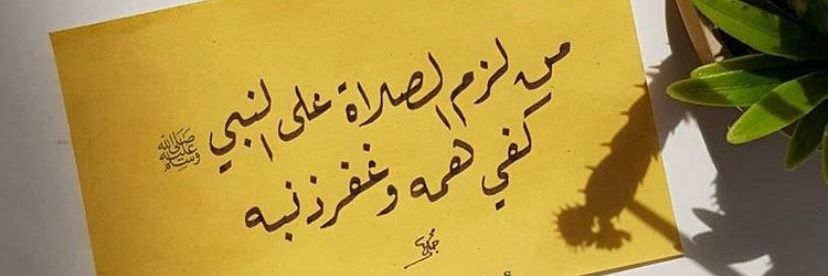 من لزم الصلاة على النبي ﷺ
كفي همه وغفر ذنبه